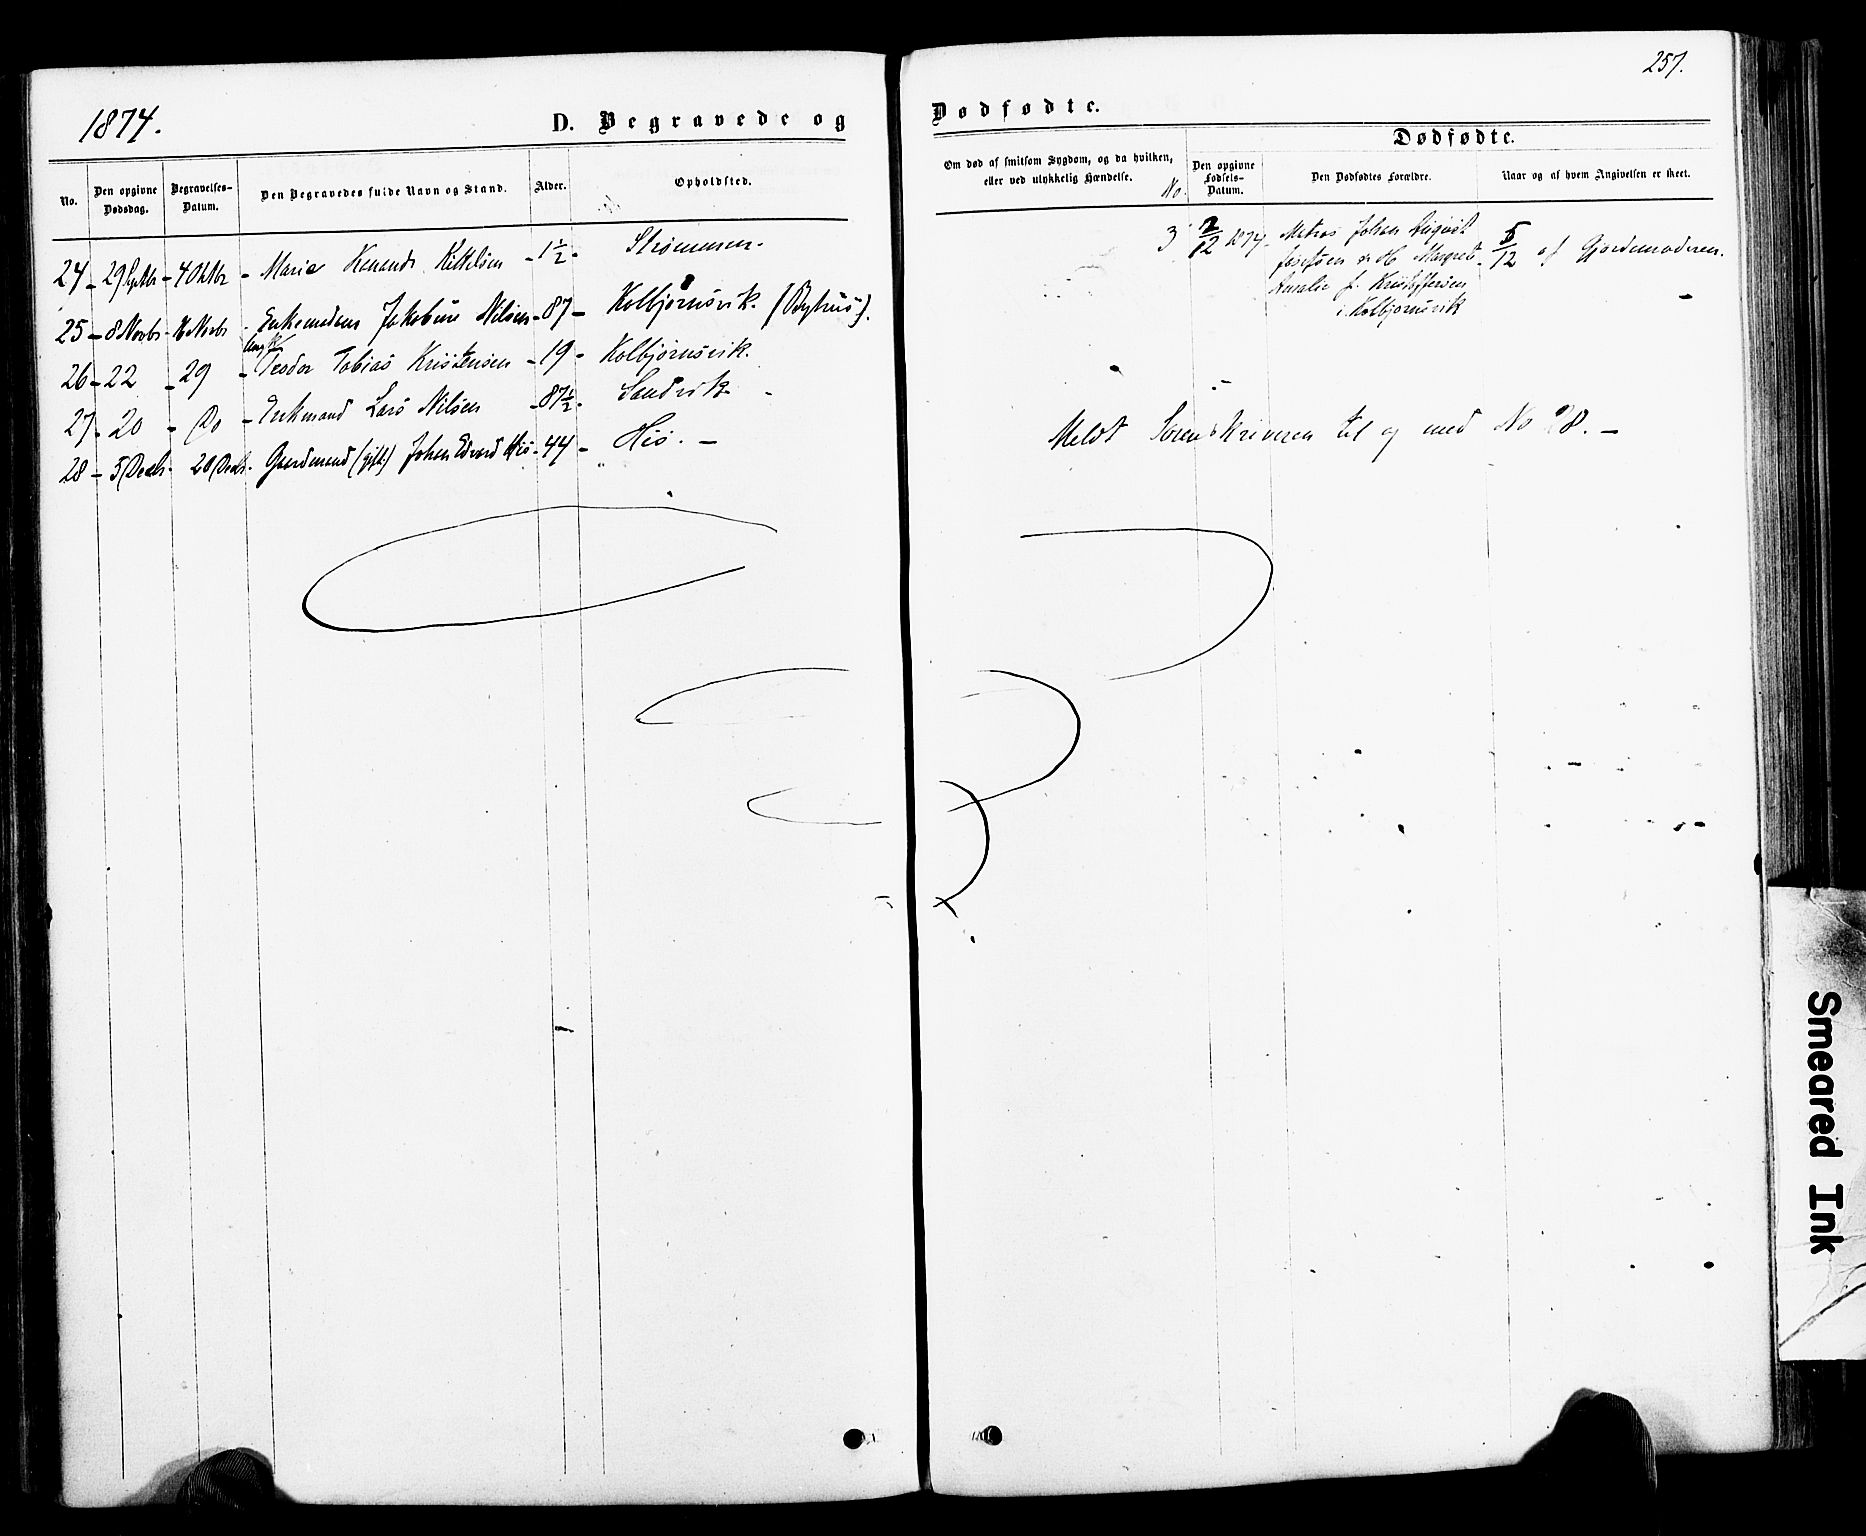 1874.
D. Begravede og
No.
Den opgivne Dødsdag.
Begravelses-Datum.
Den Begravedes fulde Navn og Stand.
Alder.
Opholdsted.
24 - 29 Septbr - 4 Oktbr - Marie Kittelsen - 1½ - Strømmen.
25 - 8 Novbr - Novbr - Enkemadam Jakobine Nilsen - 87 - Kolbjørnsvik. (Byhus).
Ungk
26 - 22 - 29 - Teodor Tobias Kristensen - 19 - Kolbjørnsvik.
27 - 20 - Do - Enkemand Lars Nilsen - 87½ - Sandvik -
28 - 5 Decbr - 20 Decbr - Gaardmand (gift) Johan Edvard His - 44 - His. -
257.
Dødfødte.
Dødfødte.
Om død af smitsom Sygdom, og da hvilken, eller ved ulykkelig Hændelse.
No.
Den opgivne Fødsels-Datum.
Den Dødfødtes Forældre.
Naar og af hvem Angivelsen er skeet.
3 2/12 1874 - Matros Johan
Josefsen & H. Margret
Amalie f. Kristoffersen
i Kolbjørnsvik
5/12 af Gjordemoderen.
Meldt Sorenskriveren til og med No 28. -
Smeared Ink